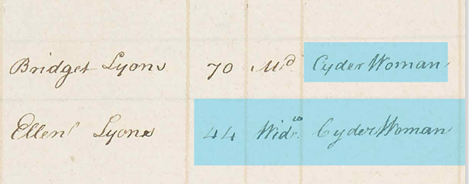 Bridget Lyons 70 Md Cyder Woman
Ellen Lyons 44 Widw Cyder Woman